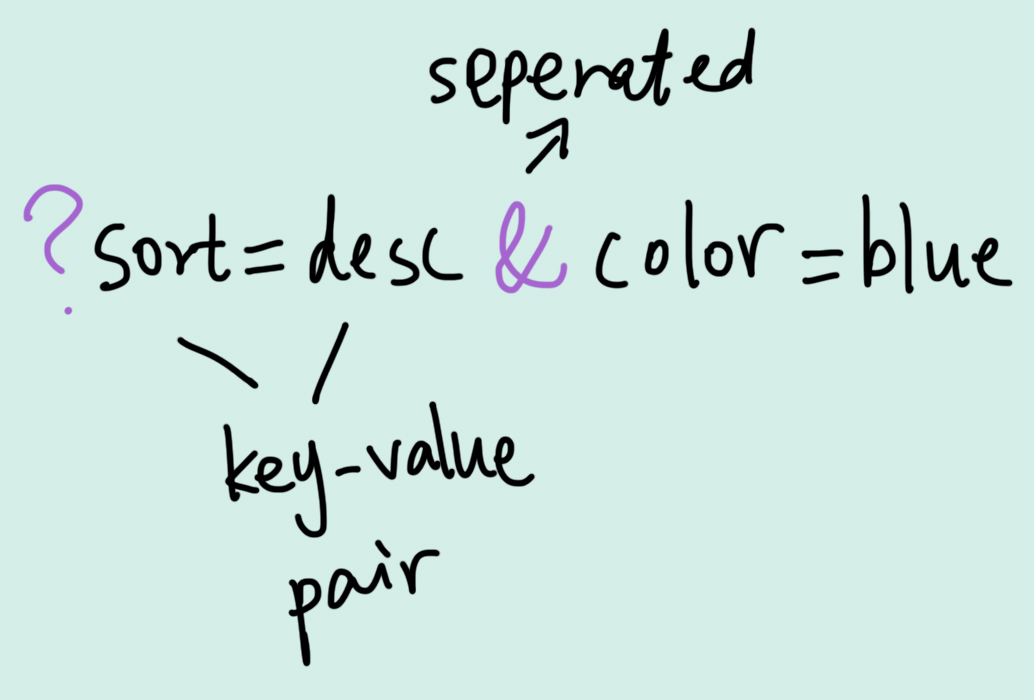 seperated
?sort=desc & color=blue
key-value
pair